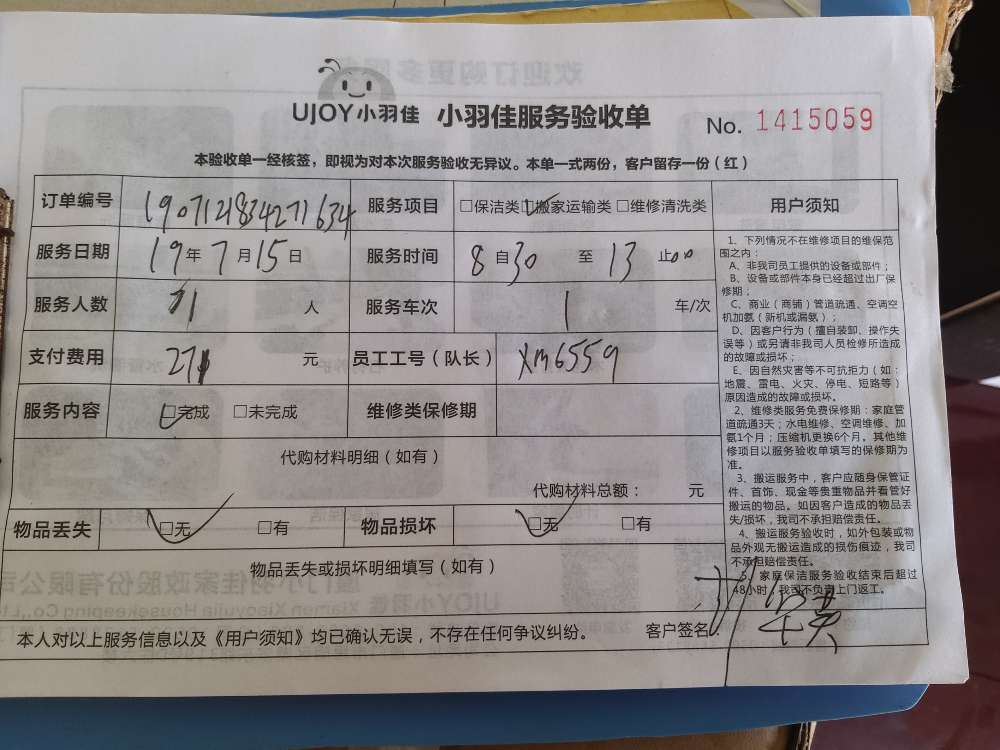 UJOY小羽佳 小羽佳服务验收单 No. 1415059
本验收单一经核签，即视为对本次服务验收无异议。本单一式两份，客户留存一份（红）
订单编号 1907121834271634 服务项目 □保洁类 □搬家运输类 □维修清洗类
服务日期 19年7月15日 服务时间 8自30至13止00
服务人数 1人 服务车次 1车/次
支付费用 271元 员工工号（队长） XM6559
服务内容 □完成 □未完成 维修类保修期
代购材料明细（如有）
代购材料总额： 元
物品丢失 □无 □有 物品损坏 □无 □有
物品丢失或损坏明细填写（如有）
本人对以上服务信息以及《用户须知》均已确认无误，不存在任何争议纠纷。 客户签名：
用户须知
1、下列情况不在维修项目的维保范
围之内：
A、非我司员工提供的设备或部件；
B、设备或部件本身已经超过出厂保
修期；
C、商业（商铺）管道疏通、空调空
机加氨（新机或漏氨）；
D、因客户行为（擅自装卸、操作失
误等）或另请非我司人员检修所造成
的故障或损坏；
E、因自然灾害等不可抗拒力（如：
地震、雷电、火灾、停电、短路等）
原因造成的故障或损坏。
2、维修类服务免费保修期：家庭管
道疏通3天；水电维修、空调维修、加
氨1个月；压缩机更换6个月。其他维
修项目以服务验收单填写的保修期为
准。
3、搬运服务中，客户应随身保管证
件、首饰、现金等贵重物品并看管好
搬运的物品。如因客户造成的物品丢
失/损坏，我司不承担赔偿责任。
4、搬运服务验收时，如外包装或物
品外观无搬运造成的损伤痕迹，我司
不承担赔偿责任。
5、家庭保洁服务验收结束后超过
48小时，我司不负责上门返工。